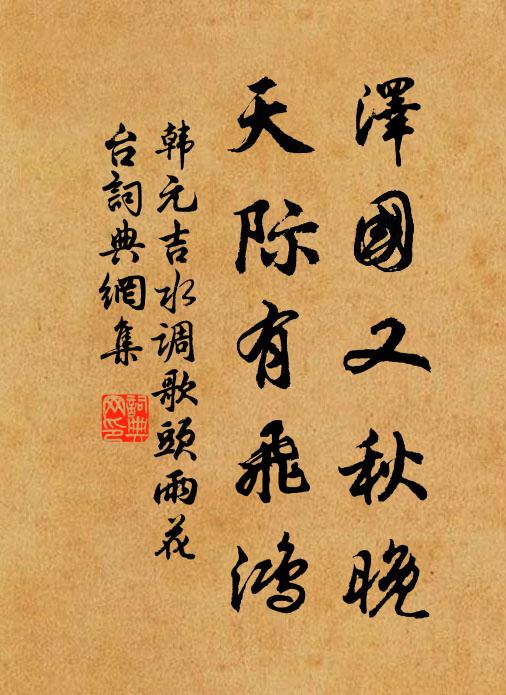 澤國又秋晚
天际有飛鴻
韩元吉水调歌頭雨花
台詞典網集
詞典網印